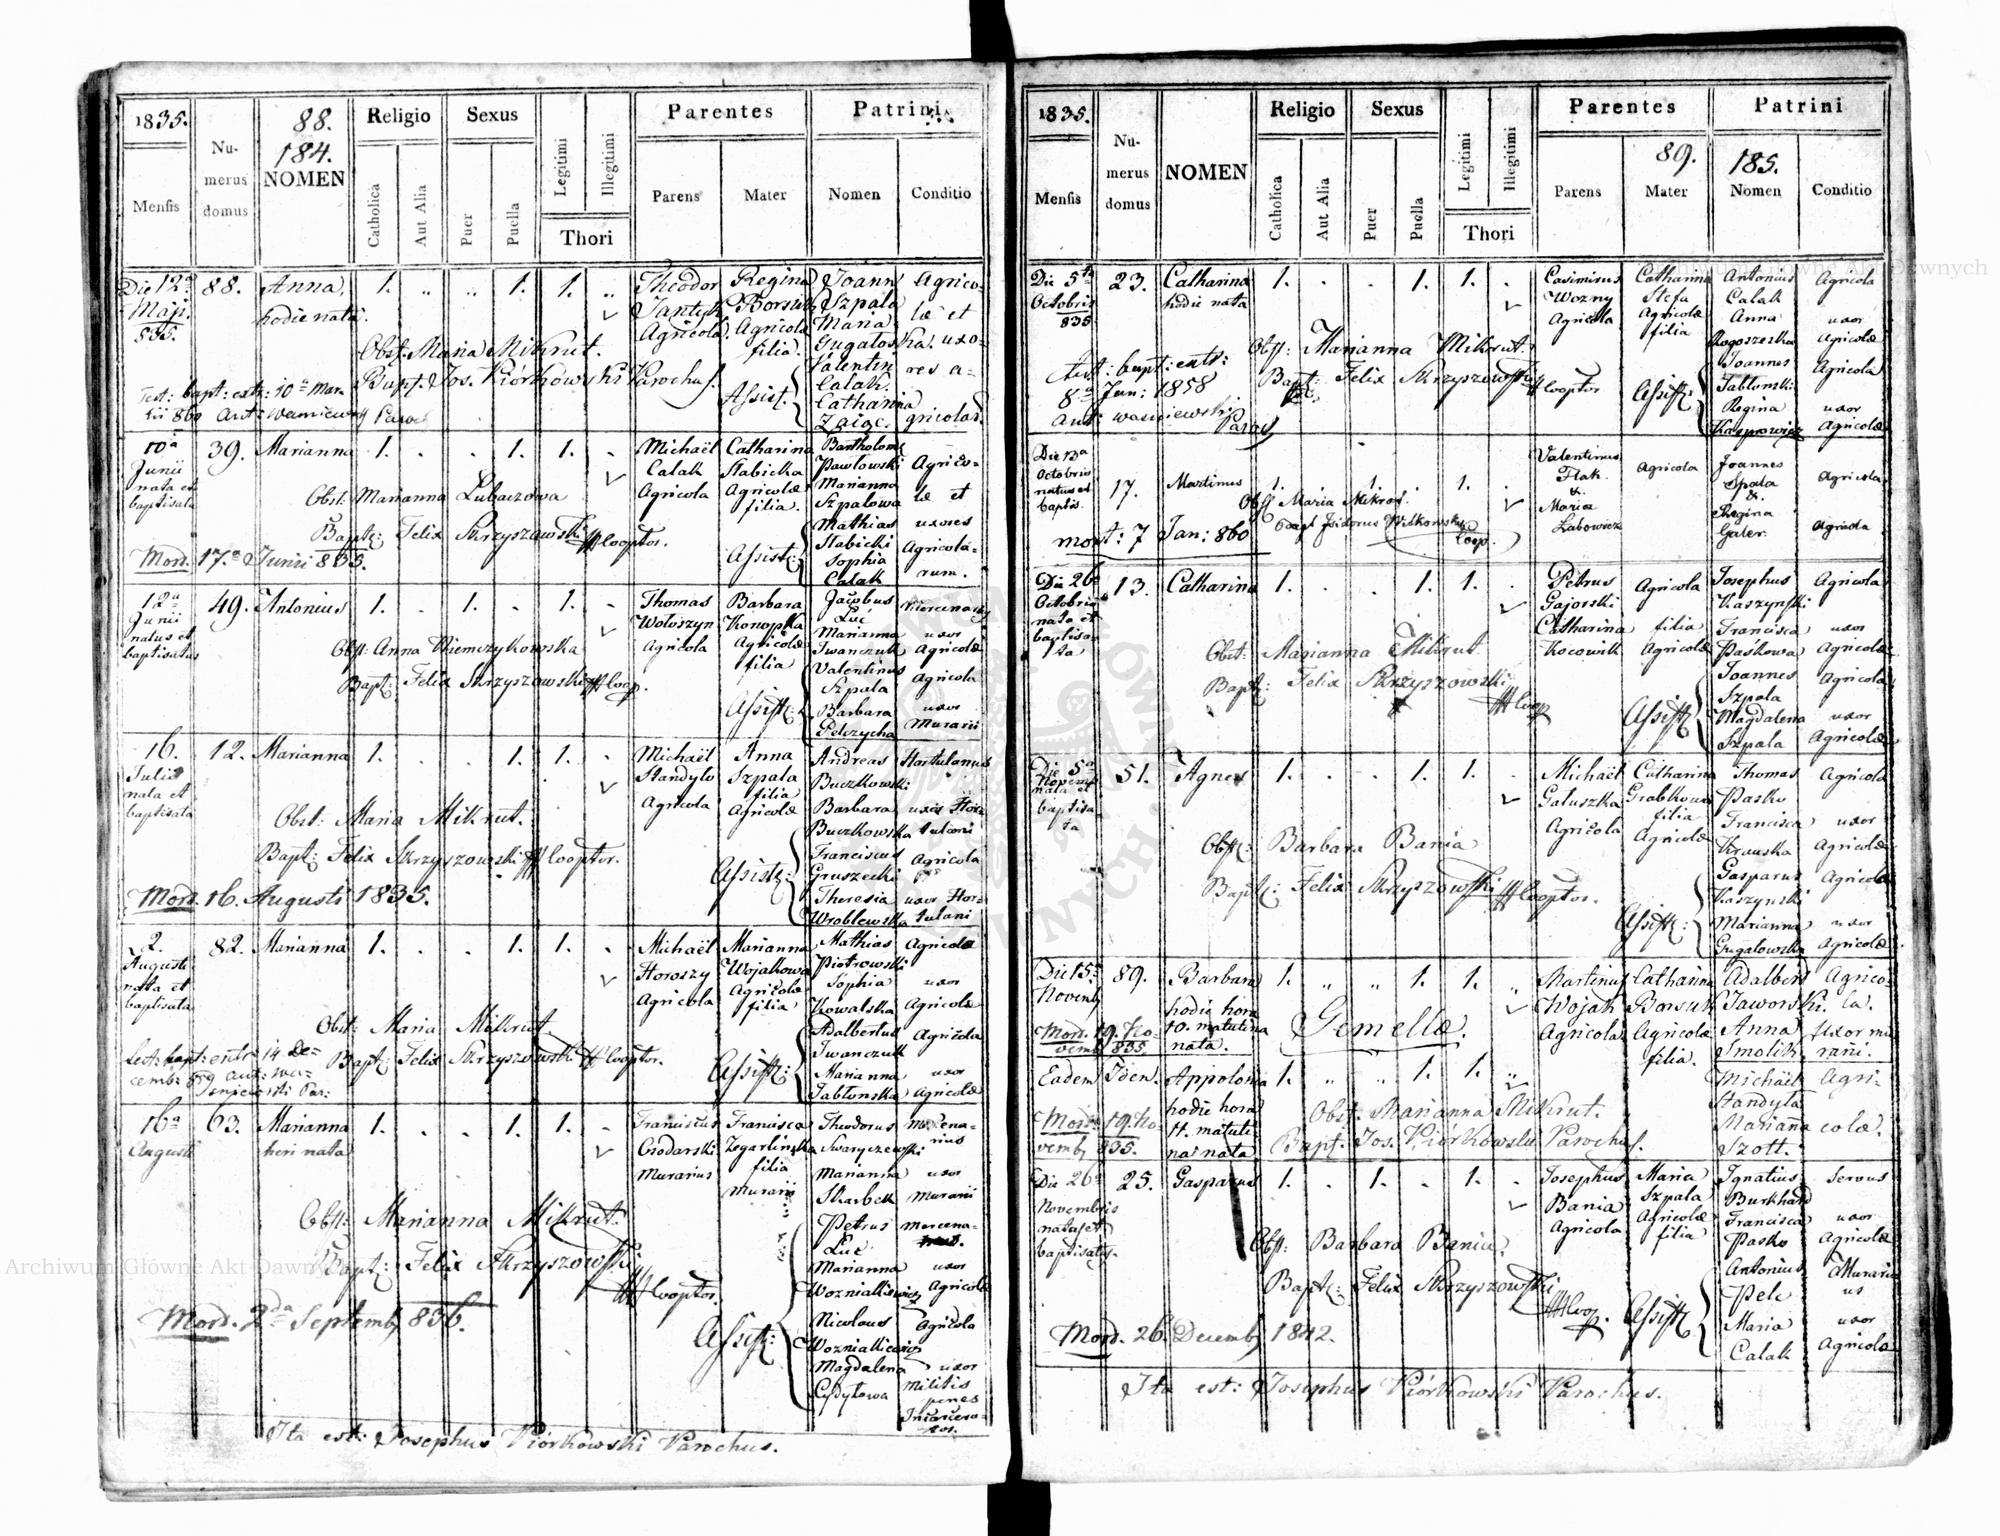 1835.
Nu-
merus
domus
88.
184.
NOMEN
Religio
Sexus
Legitimi
Illegitimi
Parentes
Patrini
Mensis
Catholica
Aut Alia
Puer
Puella
Thori
Parens
Mater
Nomen
Conditio
Die 12a 88. Anna, 1. „ „ 1. 1. „ Theodor Regina Joann Agrico-
Maji hodie nata. Jantyk Borsuk Szpala læ et
835. Agricola. Agricolæ Maria
filia. Gugaloska. uxo-
Obst. Maria Mikrut. Valentin res a-
Bapt. Jos. Piórkowski Parochus. Assist. Calak.
Test: bapt: extr: 10a Mar- Catharina
tii 860 Ant: Zając. gricolar.
10a 39. Marianna 1. . . 1. 1. . Michaël Catharina Bartholom
Junii Calak Stabicka Pawlowski Agrico-
nata et Agricola Agricolæ Marianna læ et
baptisata Obst: Marianna Lubaczowa filia. Szpalowa
Bapt: Felix Skrzyszowski Cooptor. Mathias uxores
Assist: Stabicki Agricola-
Mort. 17a Junii 835. Sophia rum.
Calak
12a 49. Antonius 1. . 1. . 1. . Thomas Barbara Jacobus
Junii Wołoszyn Konopka Łuc
natus et Agricola Agricolæ Marianna uxor
baptisatus Obst: Anna Niemczykowska filia Iwanczuk Agricolæ
Bapt: Felix Skrzyszowski Coop. Valentinus Agricola
Szpala
Assist: Barbara uxor
Pelczycha Murarii
16. 12. Marianna 1. . . 1. 1. . Michaël Anna Andreas Hortulanus
Julii Standyło Szpala Buczkowski
nata et Agricola filia Barbara uxor Hor-
baptisata Obst: Maria Mikrut. Agricolæ Buczkowska tulani
Bapt: Felix Skrzyszowski Cooptor. Franciscus Agricola
Assist: Gruszecki
Mort. 16. Augusti 1835. Theresia uxor Hor-
Wroblewska tulani
2. 82. Marianna 1. . . 1. 1. . Michaël Marianna Mathias Agricolæ
Augusti Horoszy Wojakowa Piotrowski
nata et Agricola Agricolæ Sophia uxor
baptisata filia Kowalska Agricolæ
Obst: Maria Mikrut. Adalbertus Agricola
Test: bapt: extr: 14 De- Bapt: Felix Skrzyszowski Cooptor. Assist: Iwanczuk
cemb: 859 Ant: Wa- Marianna uxor
Jabłonska Agricolæ
16a 63. Marianna 1. . . 1. 1. . Franciscus Francisca Theodorus Mercena-
Augusti heri nata Grodarski Zegarlinska Swaryczewski rius
Murarius filia Marianna uxor
Murarii Skarbek Murarii
Obst: Marianna Mikrut. Petrus Mercena-
Łuc
Bapt: Felix Skrzyszowski Marianna uxor
Cooptor. Woznialkiewicz Agricolæ
Mort. 2da Septemb. 836. Nicolaus Agricola
Assist: Woznialkiewicz
Magdalena uxor
Militis
penes
Ita est: Josephus Piórkowski Parochus.
1835.
Nu-
merus
domus
NOMEN
Religio
Sexus
Legitimi
Illegitimi
Parentes
Patrini
89. 185.
Mensis
Catholica
Aut Alia
Puer
Puella
Thori
Parens
Mater
Nomen
Conditio
Die 5ta 23. Catharina 1. . . 1. 1. . Casimirus Catharina Antonius Agricola
Octobris hodie nata Wozny Stefa Calak
835 Agricola Agricolæ Anna uxor
filia Rogoszeska Agricolæ
Obst: Marianna Mikrut. Joannes Agricola
Test: bapt: extr: Bapt: Felix Skrzyszowski Cooptor Assist: Jablonski
8a Jan: 1858 Regina uxor
Ant: Parochus Kasprowicz Agricolæ
Die 13a Valentinus Joannes
Octobris Flak Agricola Szpala Agricola
natus et 17. Martinus 1. . 1. . 1. . & &
baptis. Obst: Maria Mikrut. Maria Regina
Bapt: Isidorus Witkowski Coop. Labowicz Galer. Agricola
mort: 7 Jan: 860
Die 26a 13. Catharina 1. . . 1. 1. . Petrus Agricola Josephus Agricola
Octobris Gajorski Kaszynski
nata et Catharina filia Francisca uxor
baptisa- Kocowik Agricolæ Paskowa Agricolæ
ta Obst: Marianna Mikrut Joannes Agricola
Bapt: Felix Skrzyszowski Szpala
Coop Assist: Magdalena uxor
Szpala Agricolæ
Die 5a 51. Agnes 1. . . 1. 1. . Michaël Catharina Thomas Agricola
Novemb. Gałuszka Grabkowa Pasko
nata et Agricola filia Francisca uxor
baptisa- Agricolæ Krauska Agricolæ
ta Obst: Barbara Bania Gasparus Agricola
Bapt: Felix Skrzyszowski Cooptor. Kaszynski
Assist: Marianna uxor
Gugałowska Agricolæ
Die 15a 89. Barbara 1. „ „ 1. 1. „ Martinus Catharina Adalbert Agrico-
Novemb. hodie hora Wojak Borsuk Jaworski. la.
Mort. 19. No- 10. matutina Gemellæ. Agricola Agricolæ Anna Uxor mu-
vemb. 835. nata. filia. Smolik rarii.
Eadem Iden. Appolonia 1. „ „ 1. 1. „ Michäel Agri-
hodie hora Obst. Marianna Mikrut. Standyla
Mort. 19. No- 11. matuti- Mariana colæ.
vemb. 835. na nata Bapt. Jos. Piórkowski Parochus. Szott.
Die 26a 25. Gasparus 1. . 1. . 1. . Josephus Maria Ignatius Servus
Novembris Bania Szpala Burkhard
natus et Agricola Agricolæ Francisca uxor
baptisatus. Obst: Barbara Bania. filia Pasko Agricolæ
Bapt: Felix Skrzyszowski Antonius Murari-
Coop. Assist: Pelc us
Mort. 26. Decemb. 1842. Maria uxor
Calak Agricolæ
Ita est: Josephus Piórkowski Parochus.
Archiwum Główne Akt Dawnych
Archiwum Główne Akt Dawnych